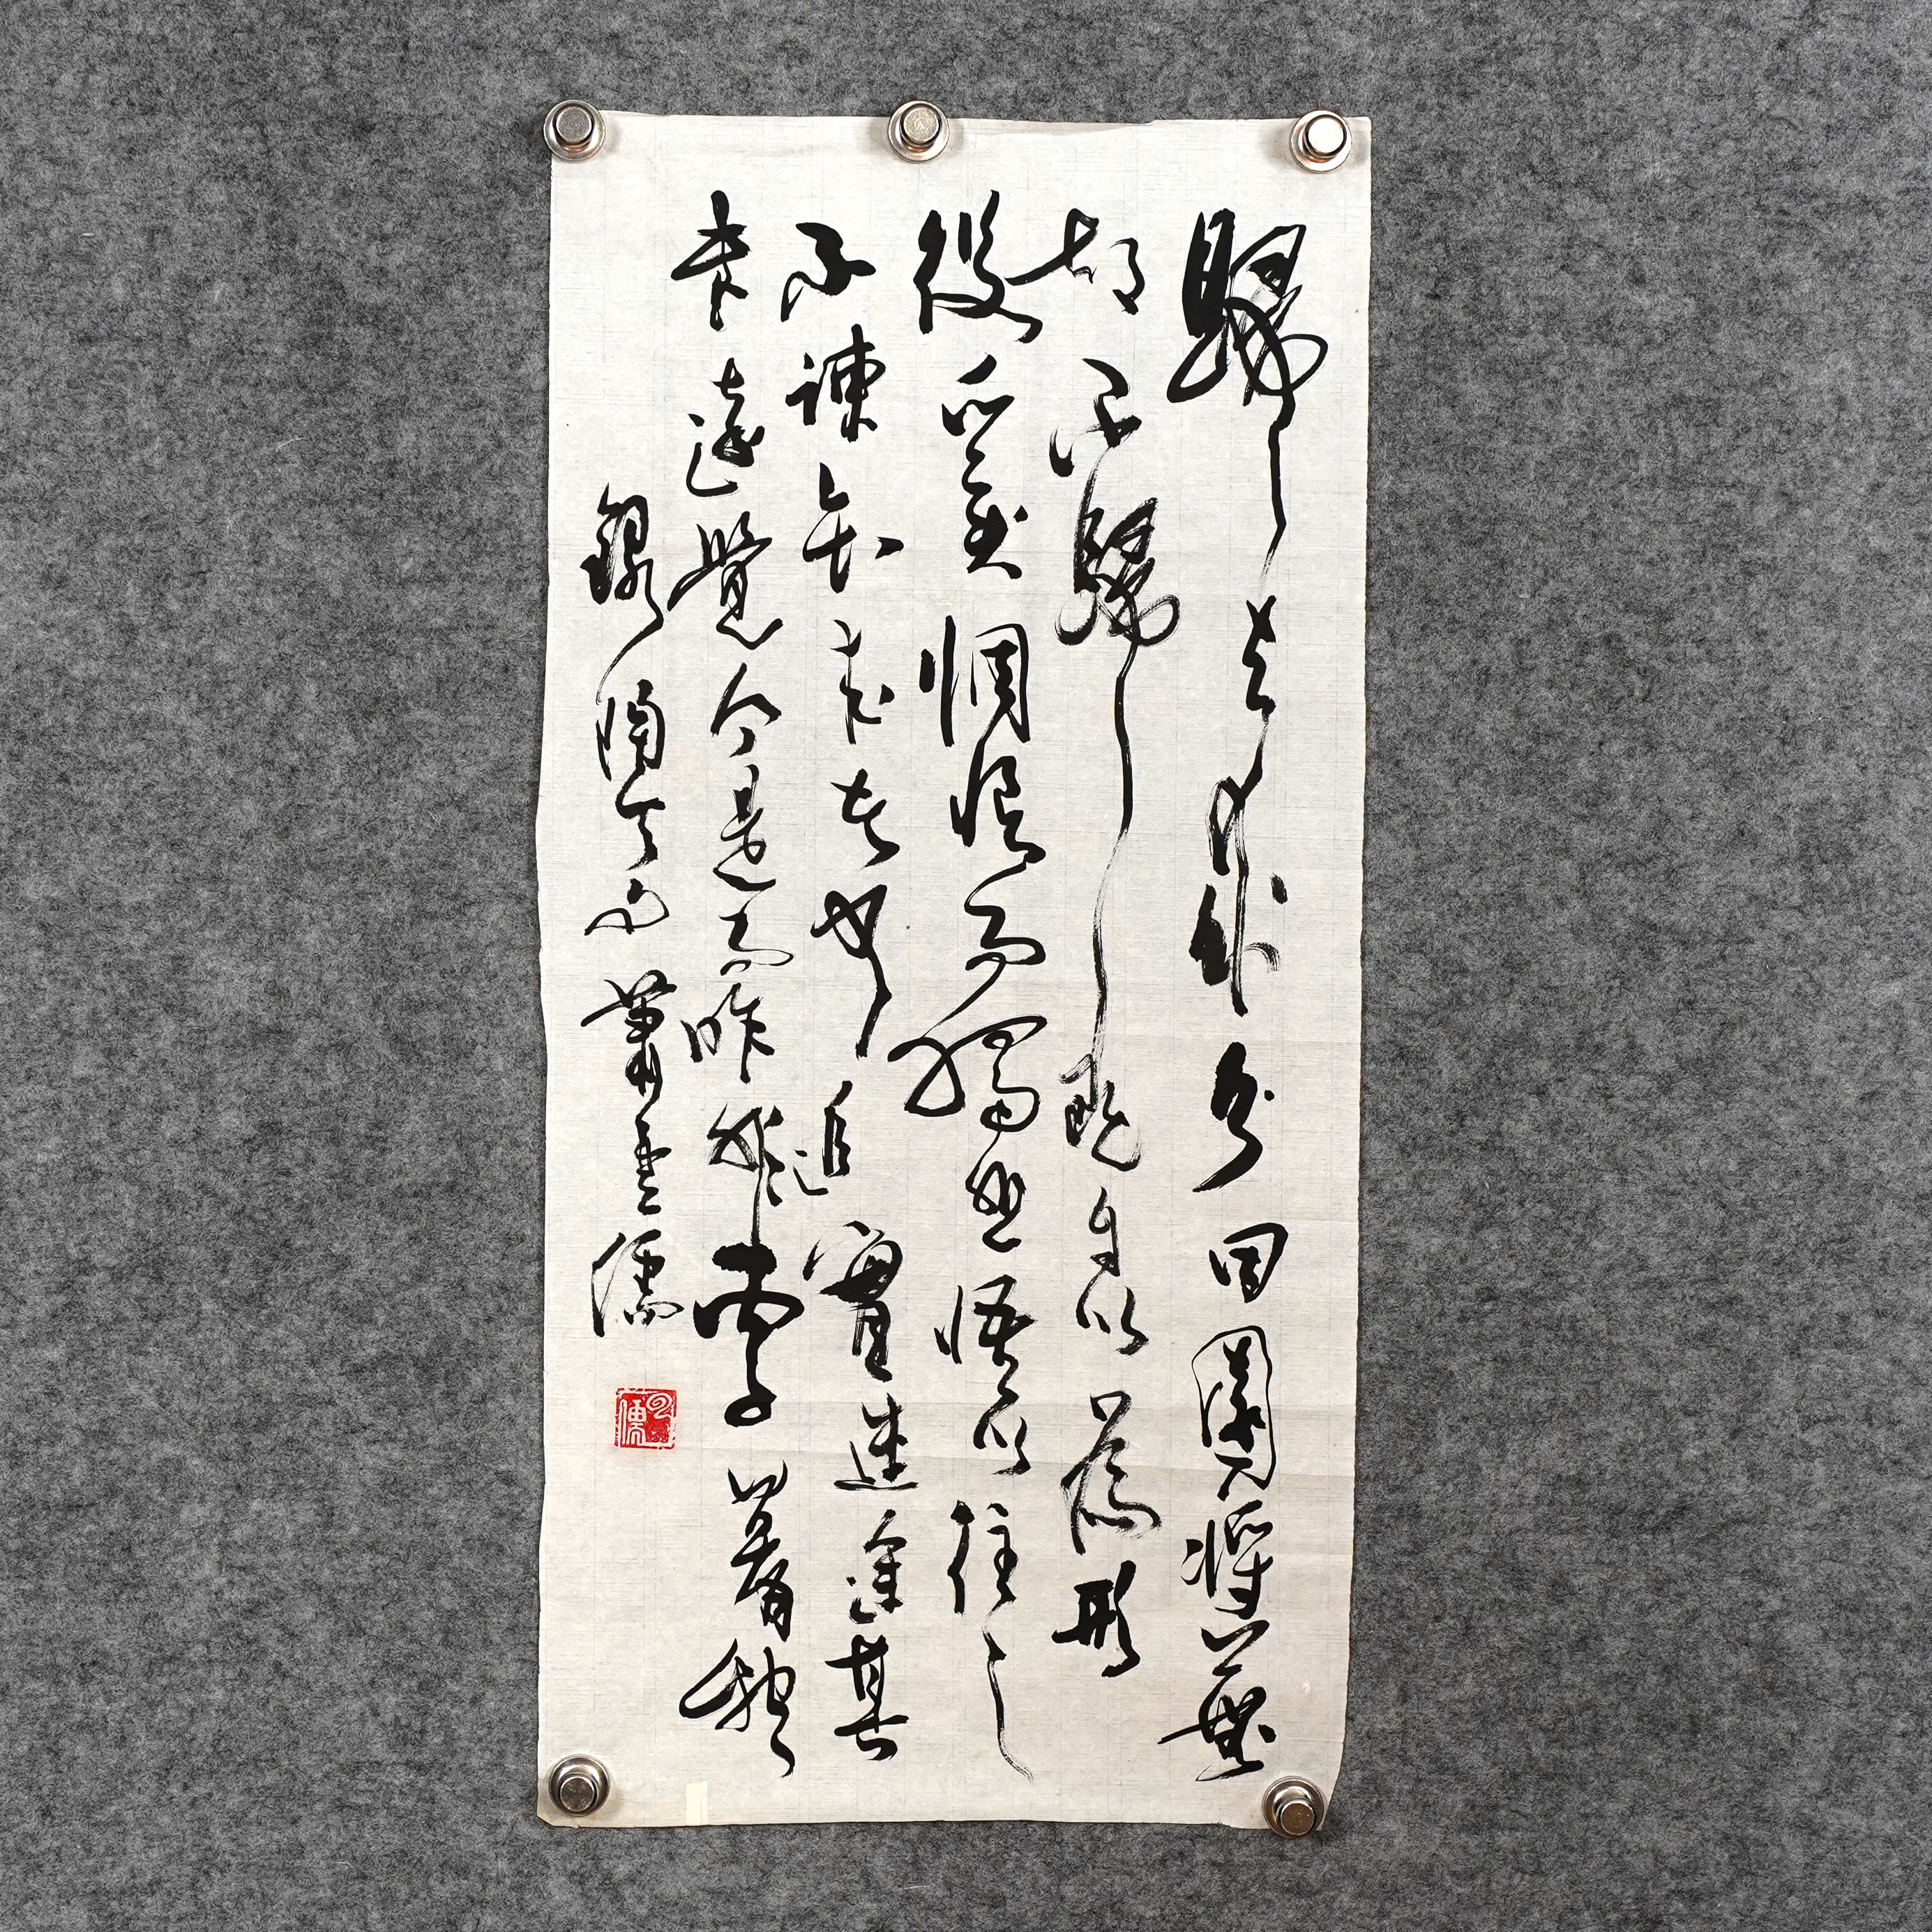 歸去來兮田園將蕪
胡不歸既自以為形
役奚惆悵而獨悲悟以往之
不諫知來者可追實迷途其
未遠覺今是而昨非丙子暮秋
錄陶令句蕭雲儒